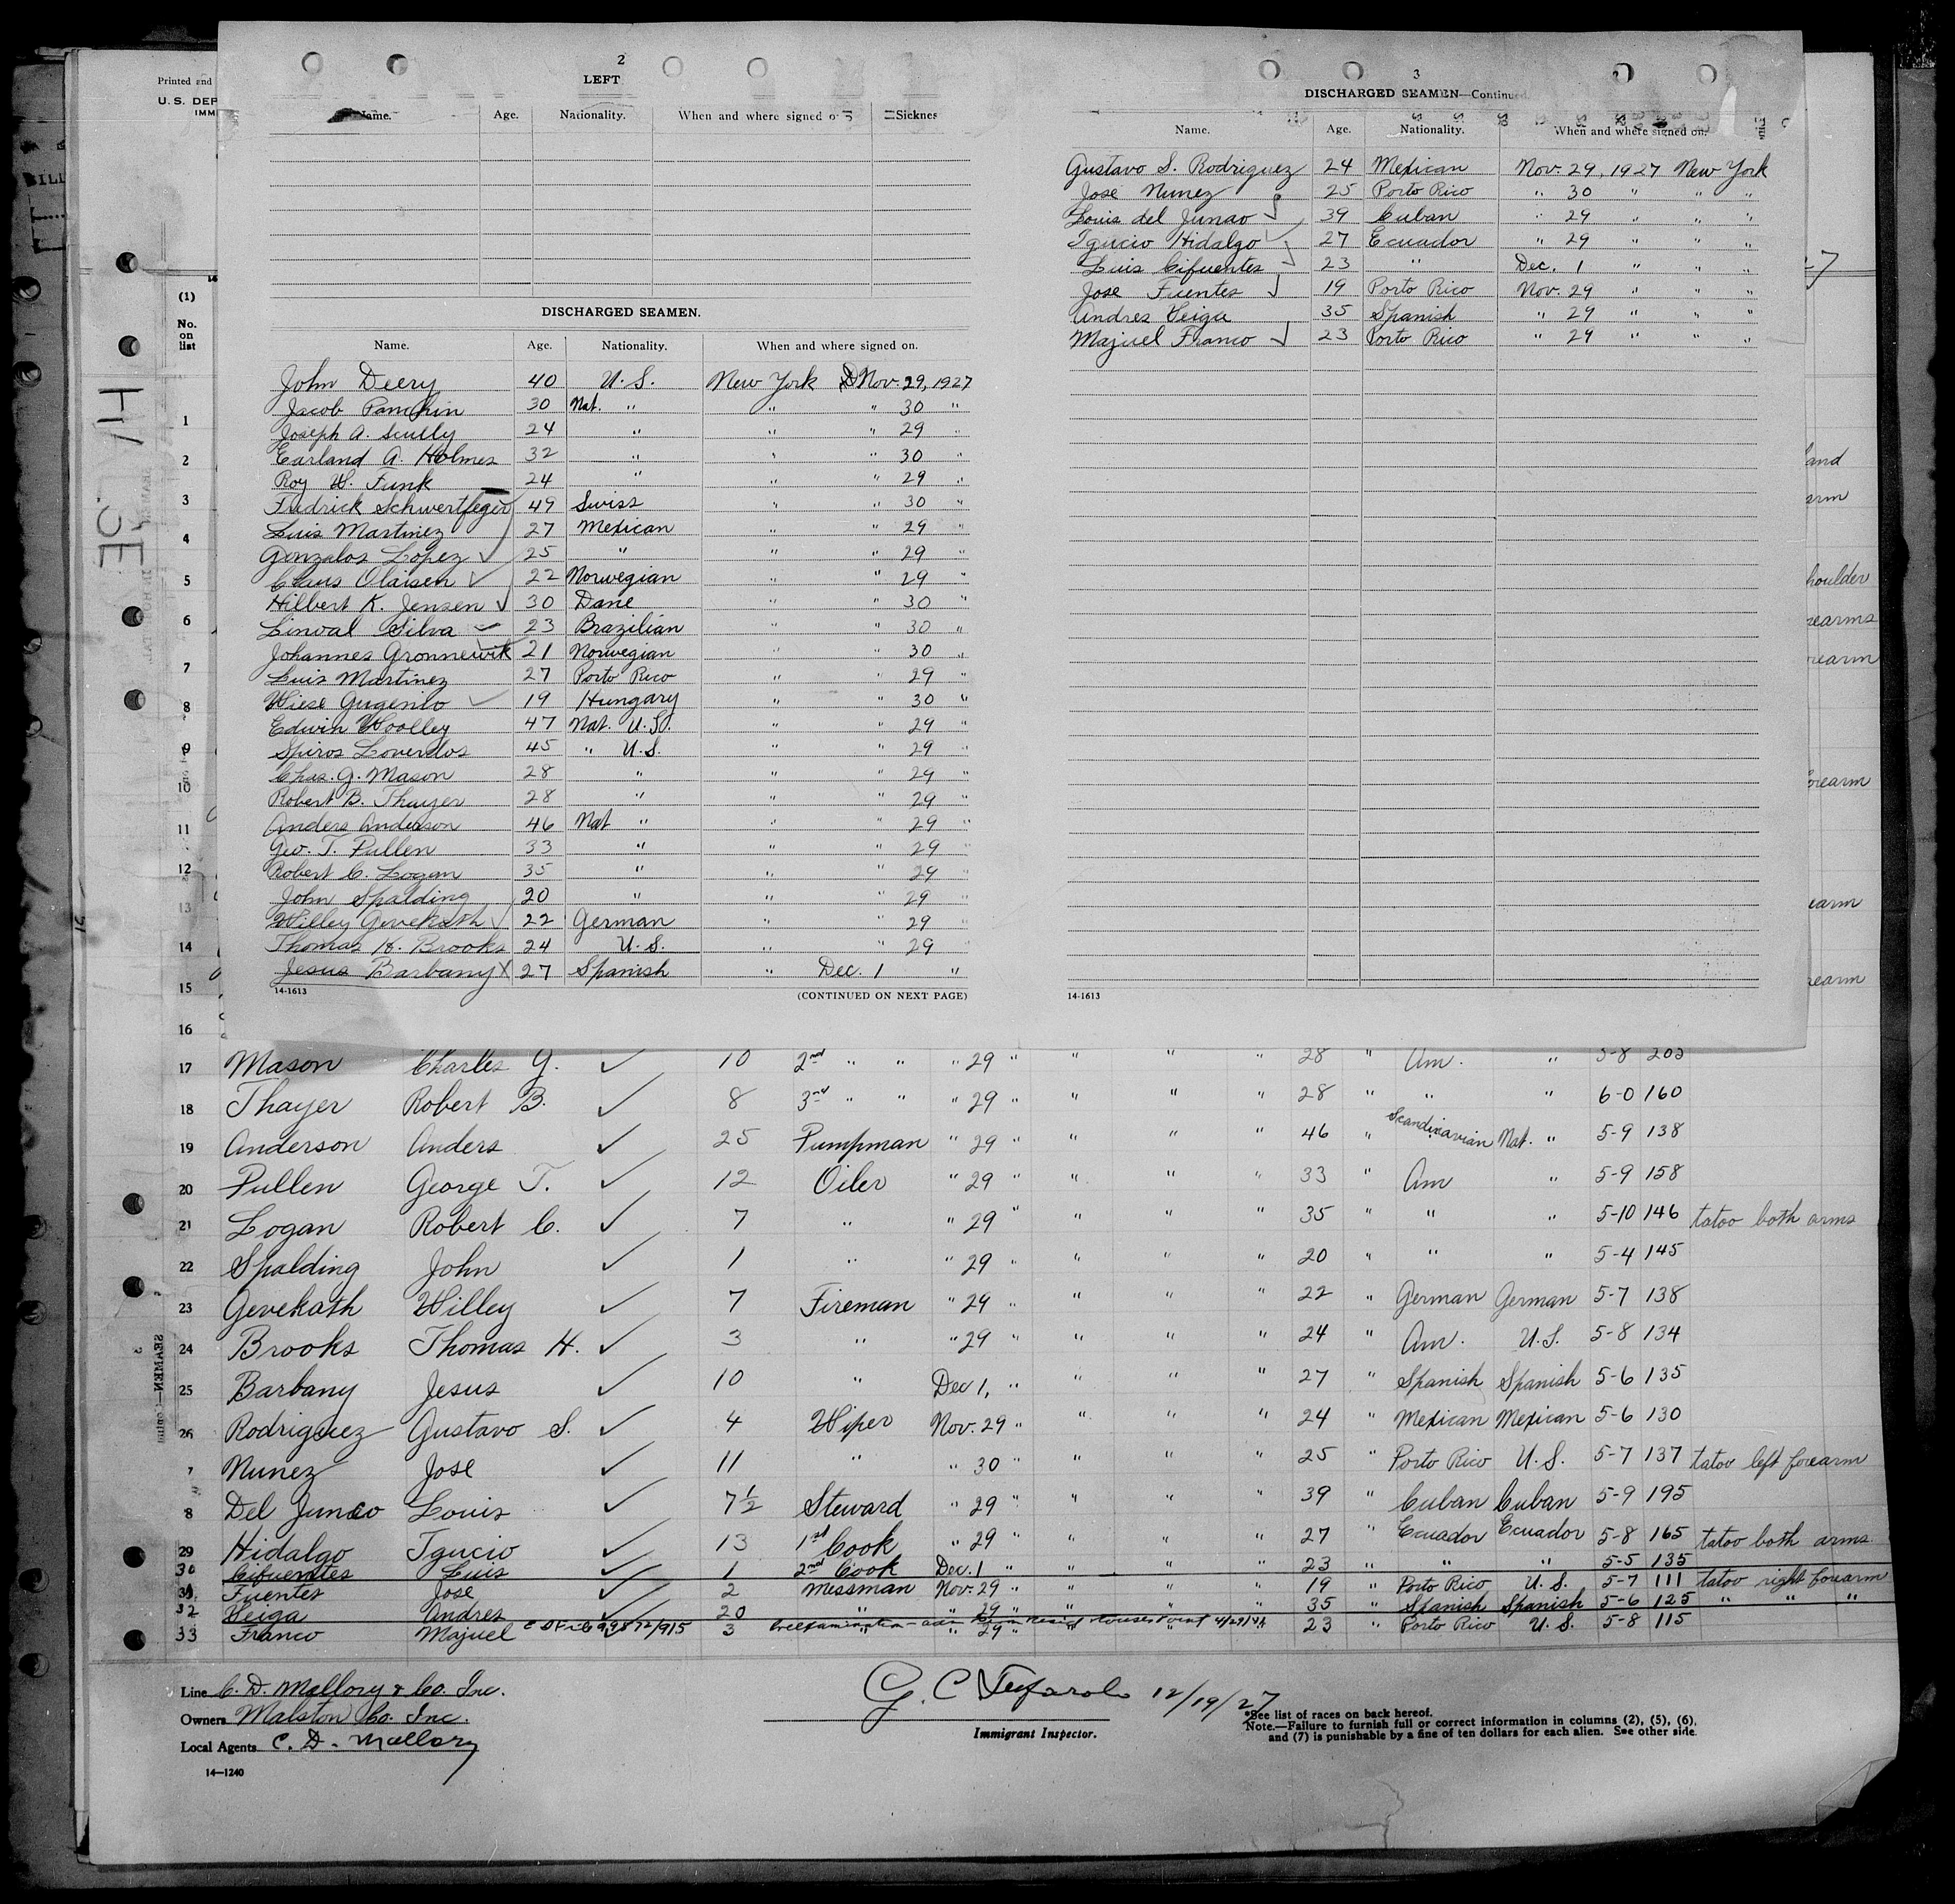 Printed and
U. S. DEP
IMM
2
LEFT
Name. Age. Nationality. When and where signed o Sicknes
DISCHARGED SEAMEN.
Name. Age. Nationality. When and where signed on.
John Deery 40 U.S. New York Nov. 29, 1927
Jacob Panchin 30 Nat. " " " 30 "
Joseph A. Scully 24 " " " 29 "
Earland A. Holmes 32 " " " 30 "
Roy W. Funk 24 " " " 29 "
Fredrick Schwertfeger 49 Swiss " " 30 "
Luis Martinez 27 Mexican " " 29 "
Gonzalos Lopez 25 " " " 29 "
Claus Olaisen 22 Norwegian " " 29 "
Hilbert K. Jensen 30 Dane " " 30 "
Linval Silva 23 Brazilian " " 30 "
Johannes Gronnewik 21 Norwegian " " 30 "
Luis Martinez 27 Porto Rico " " 29 "
Wiese Gugenilo 19 Hungary " " 30 "
Edwin Woolley 47 Nat. U.S. " " 29 "
Spiros Loverdos 45 " U.S. " " 29 "
Chas. G. Mason 28 " " " 29 "
Robert B. Thayer 28 " " " 29 "
Anders Anderson 46 Nat " " " 29 "
Geo. T. Pullen 33 " " " 29 "
Robert C. Logan 35 " " " 29 "
John Spalding 20 " " " 29 "
Willey Gevekath 22 German " " 29 "
Thomas H. Brooks 24 U.S. " " 29
Jesus Barbany X 27 Spanish " Dec. 1 "
14-1613 (CONTINUED ON NEXT PAGE)
3
DISCHARGED SEAMEN—Continued
Name. Age. Nationality. When and where signed on.
Gustavo S. Rodriguez 24 Mexican Nov. 29, 1927 New York
Jose Nunez 25 Porto Rico " 30 " " "
Louis del Junao 39 Cuban " 29 " " "
Igucio Hidalgo 27 Ecuador " 29 " " "
Luis Cifuentes 23 " Dec. 1 " " "
Jose Fuentes 19 Porto Rico Nov. 29 " " "
Andres Veiga 35 Spanish " 29 " " "
Majuel Franco 23 Porto Rico " 29 " " "
14-1613
(1)
No.
on
list
1
2
3
4
5
6
7
8
9
10
11
12
13
14
15
16
land
arm
houlder
rearms
rearm
orearm
earm
rearm
17 Mason Charles G. 10 2nd " " " 29 " " " " 28 " Am. " 5-8 203
18 Thayer Robert B. 8 3rd " " " 29 " " " " 28 " " " 6-0 160
19 Anderson Anders 25 Pumpman " 29 " " " " 46 " Scandinavian Nat. " 5-9 138
20 Pullen George T. 12 Oiler " 29 " " " " 33 " Am " 5-9 158
21 Logan Robert C. 7 " " 29 " " " " 35 " " " 5-10 146 tatoo both arms
22 Spalding John 1 " " 29 " " " " 20 " " " 5-4 145
23 Gevekath Willey 7 Fireman " 29 " " " " 22 " German German 5-7 138
24 Brooks Thomas H. 3 " " 29 " " " " 24 " Am. U.S. 5-8 134
25 Barbany Jesus 10 " Dec 1, " " " " 27 " Spanish Spanish 5-6 135
26 Rodriguez Gustavo S. 4 Wiper Nov. 29 " " " " 24 " Mexican Mexican 5-6 130
7 Nunez Jose 11 " " 30 " " " " 25 " Porto Rico U.S. 5-7 137 tatoo left forearm
8 Del Junco Louis 7 1/2 Steward " 29 " " " " 39 " Cuban Cuban 5-9 195
29 Hidalgo Igucio 13 1st Cook " 29 " " " " 27 " Ecuador Ecuador 5-8 165 tatoo both arms
30 Cifuentes Luis 1 2nd Cook Dec. 1 " " " " 23 " " " 5-5 135
31 Fuentes Jose 2 Messman Nov. 29 " " " " 19 " Porto Rico U.S. 5-7 111 tatoo right forearm
32 Veiga Andres 20 " " 29 " " " " 35 " Spanish Spanish 5-6 125 " " "
33 Franco Majuel 3 " " 29 " " " " 23 " Porto Rico U.S. 5-8 115
Line C. D. Mallory & Co. Inc.
Owners Malston Co. Inc.
Local Agents C. D. Mallory
14—1240
12/19/27
Immigrant Inspector.
*See list of races on back hereof.
Note.—Failure to furnish full or correct information in columns (2), (5), (6),
and (7) is punishable by a fine of ten dollars for each alien. See other side.